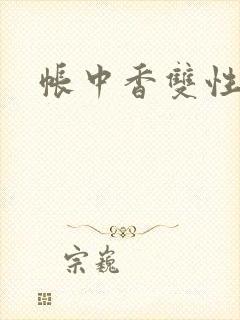 帐中香雙性
宗巍